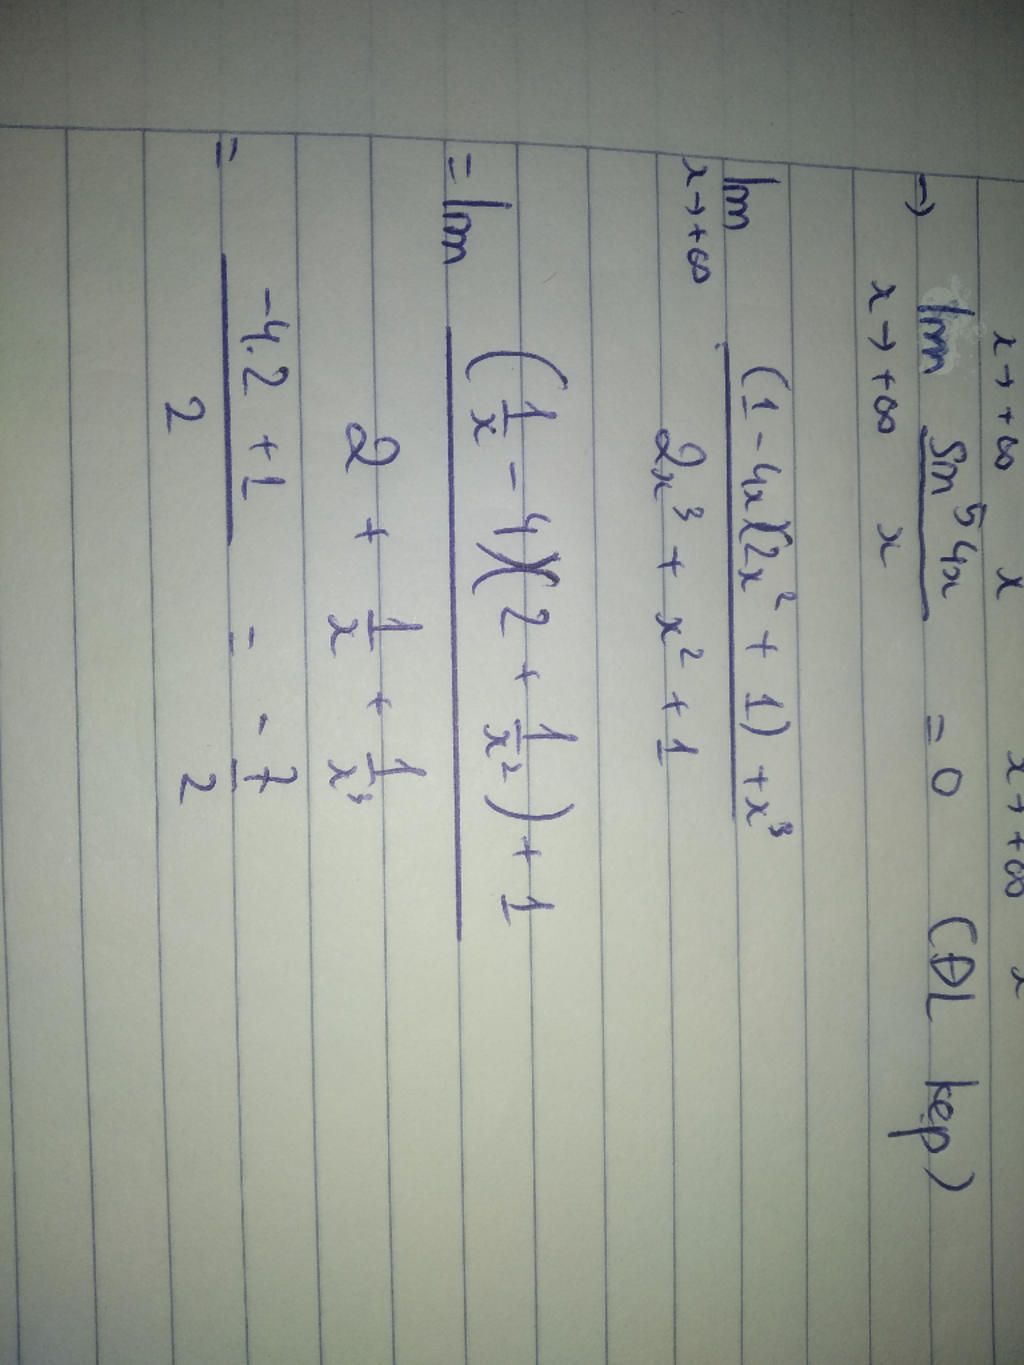 x→+∞ x x→+∞ x
→ lim sin⁵4x / x = 0 (ĐL kẹp)
x→+∞
lim (1 - 4x)(2x² + 1) + x³ / 2x³ + x² + 1
x→+∞
= lim (1/x - 4)(2 + 1/x²) + 1 / 2 + 1/x + 1/x³
= -4.2 + 1 / 2 = -7/2